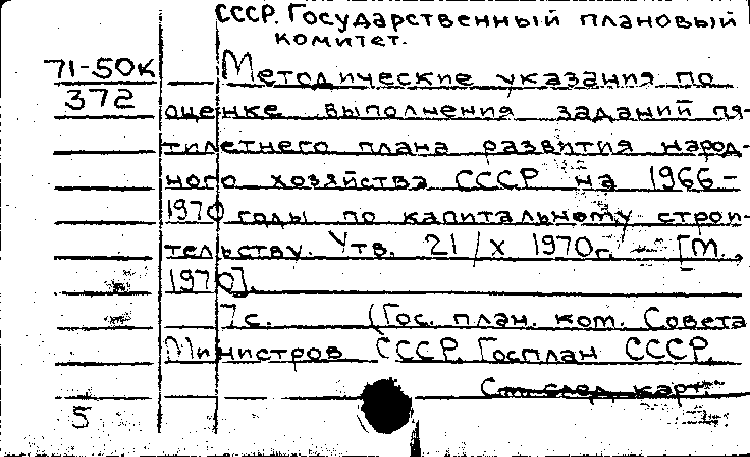 СССР. Государственный плановый
комитет.
71-50к
372
Методические указания по
оценке выполнения заданий пя-
тилетнего плана развития народ-
ного хозяйства СССР на 1966-
1970 годы по капитальному строи-
тельству. Утв. 21/X 1970г. - [М.,
1970].
7 с. (Гос. план. ком. Совета
Министров СССР. Госплан СССР.
См. след. карт.
5